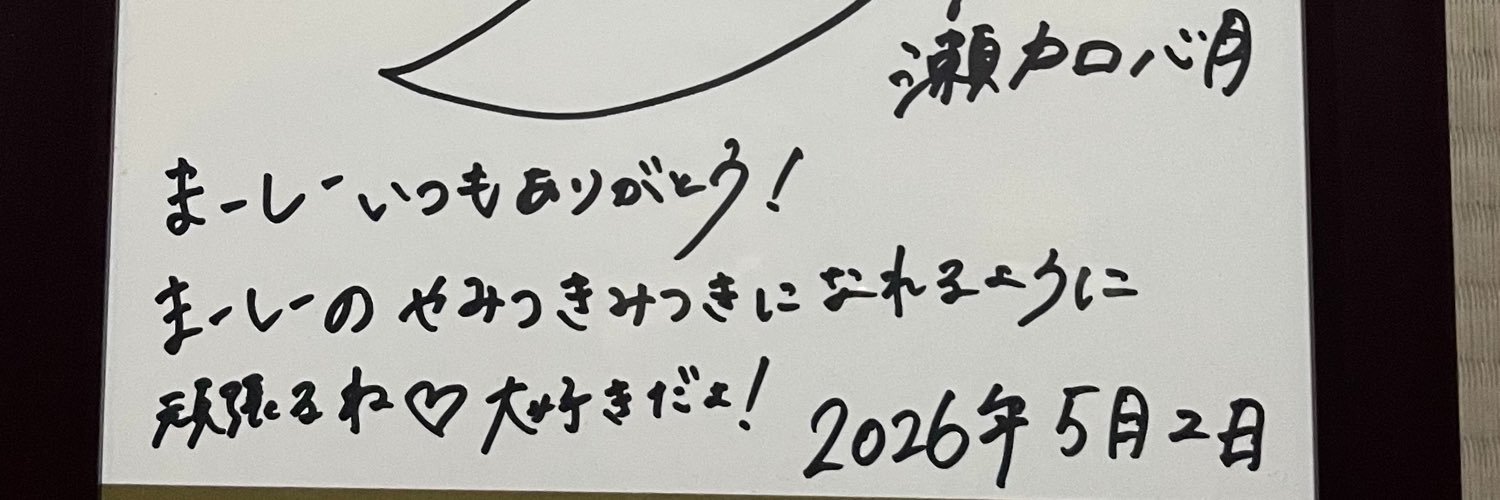 瀬加心月
まーしーいつもありがとう!
まーしーのやみつきみつきになれるように
頑張るね♡大好きだよ!
2026年5月2日